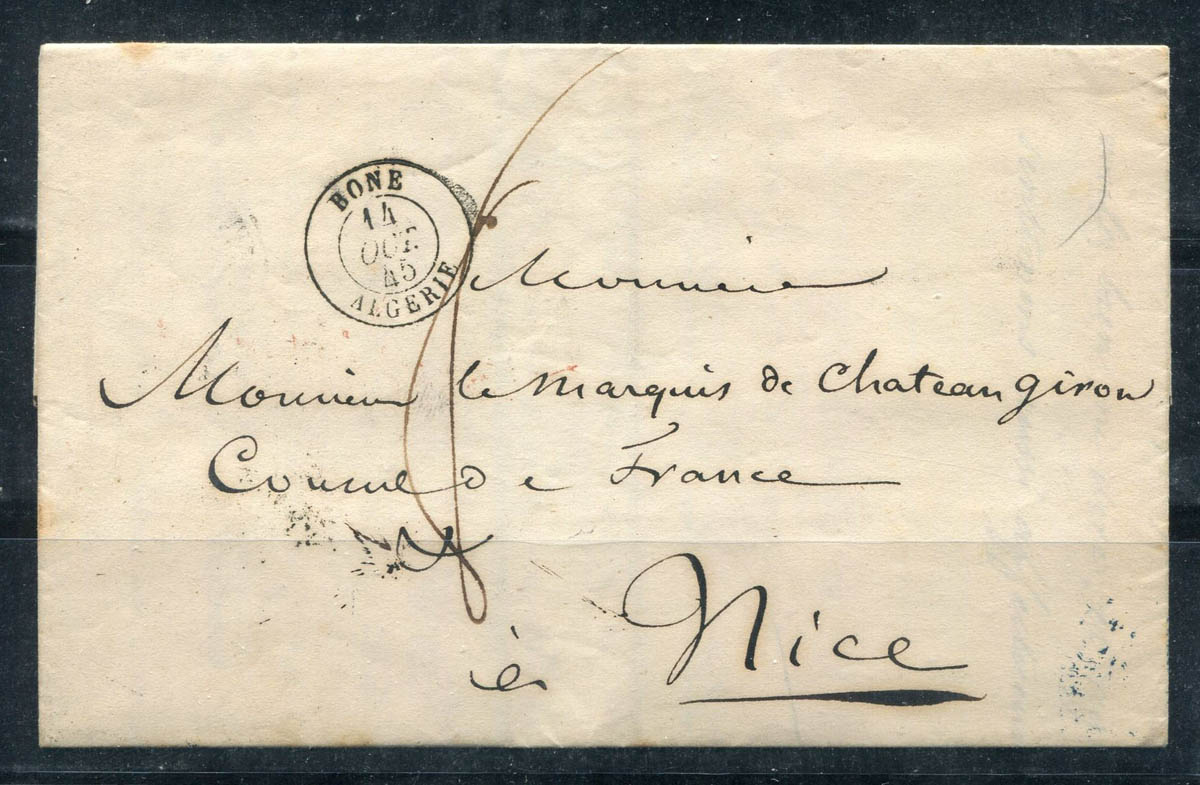 BONE
14
OCT.
45
ALGERIE
Monsieur
Monsieur le Marquis de Chateaugiron
Consul de France
à Nice